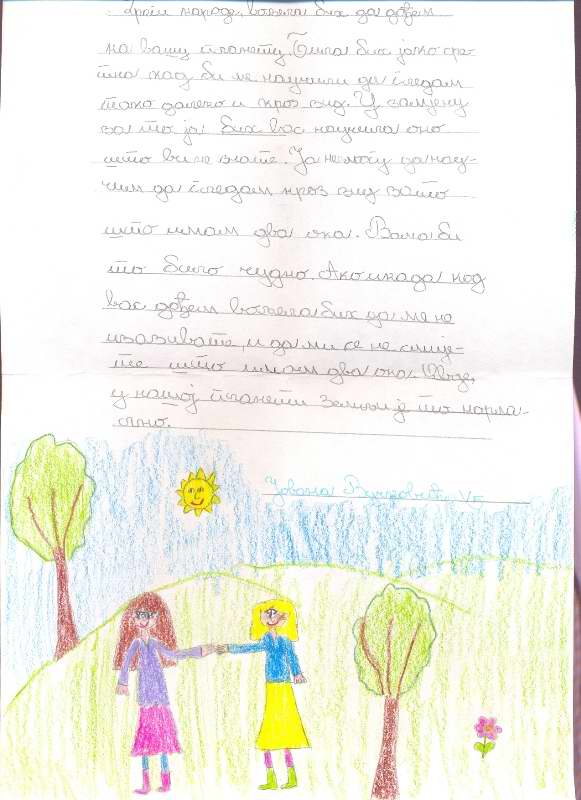 Драги народе, вољела бих да дођем
на вашу планету. Била бих јако сре-
тна кад би ме научили да гледам
тако далеко и кроз зид. У замјену
за то ја бих вас научила оно
што ви не знате. Ја не могу да нау-
чим да гледам кроз зид зато
што имам два ока. Вама би
то било чудно. Ако икада код
вас дођем вољела бих да ме не
изазивате, и да ми се не смије-
те што имам два ока. Овде,
у нашој планети Земљи је то норма-
лно.
Јована V₅